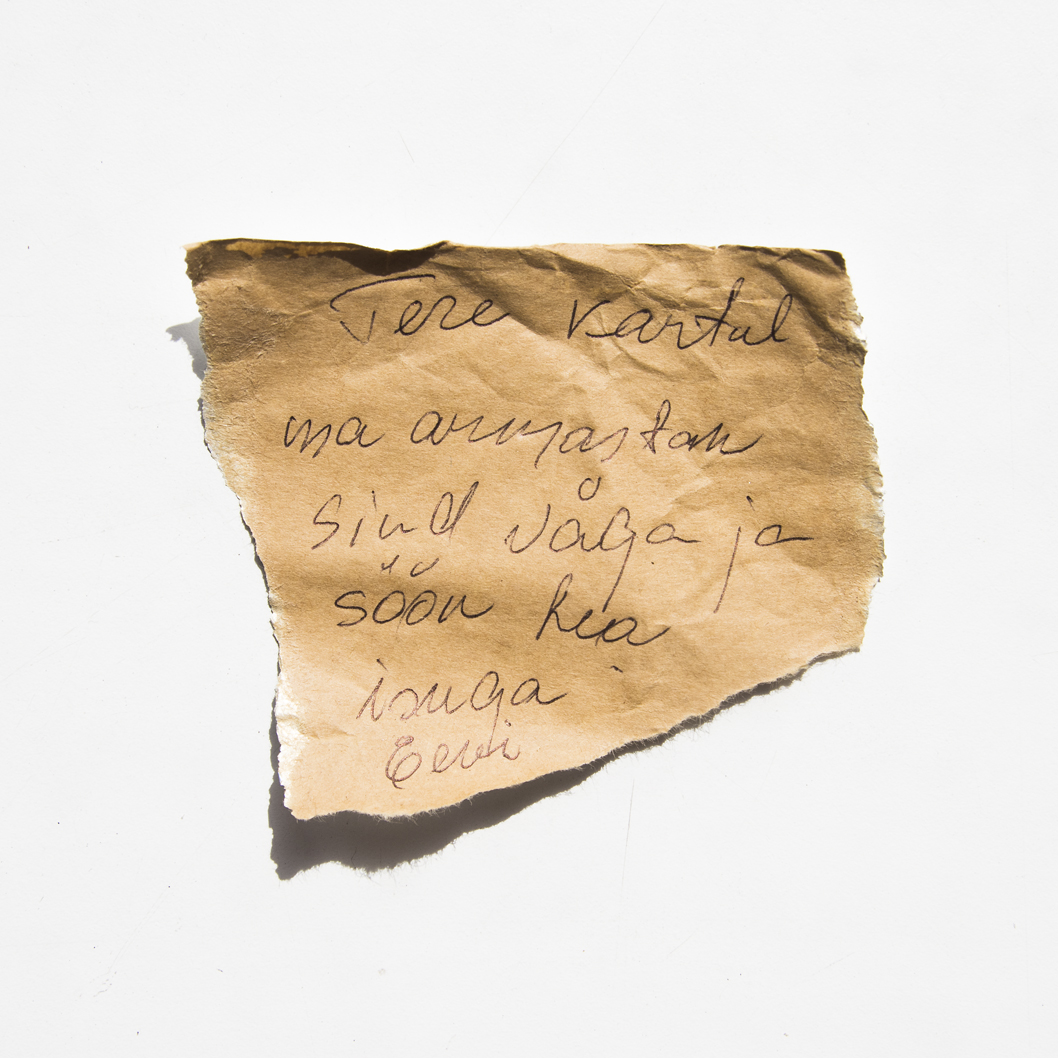 Tere kartul
ma armastan
sind väga ja
söön hea
isuga
Eevi